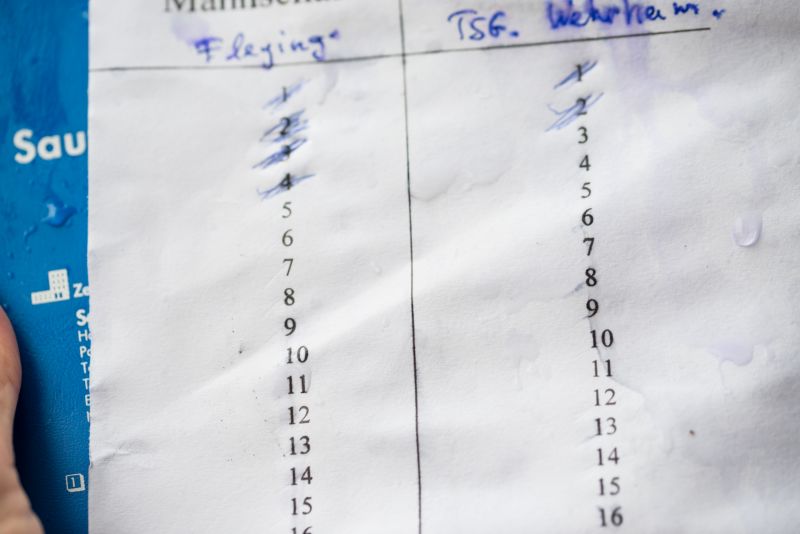 TSG. Wehrheim.
Fleging.
1 1
2 2
3 3
4 4
5 5
6 6
7 7
8 8
9 9
10 10
11 11
12 12
13 13
14 14
15 15
16 16
Sau
Ze
1